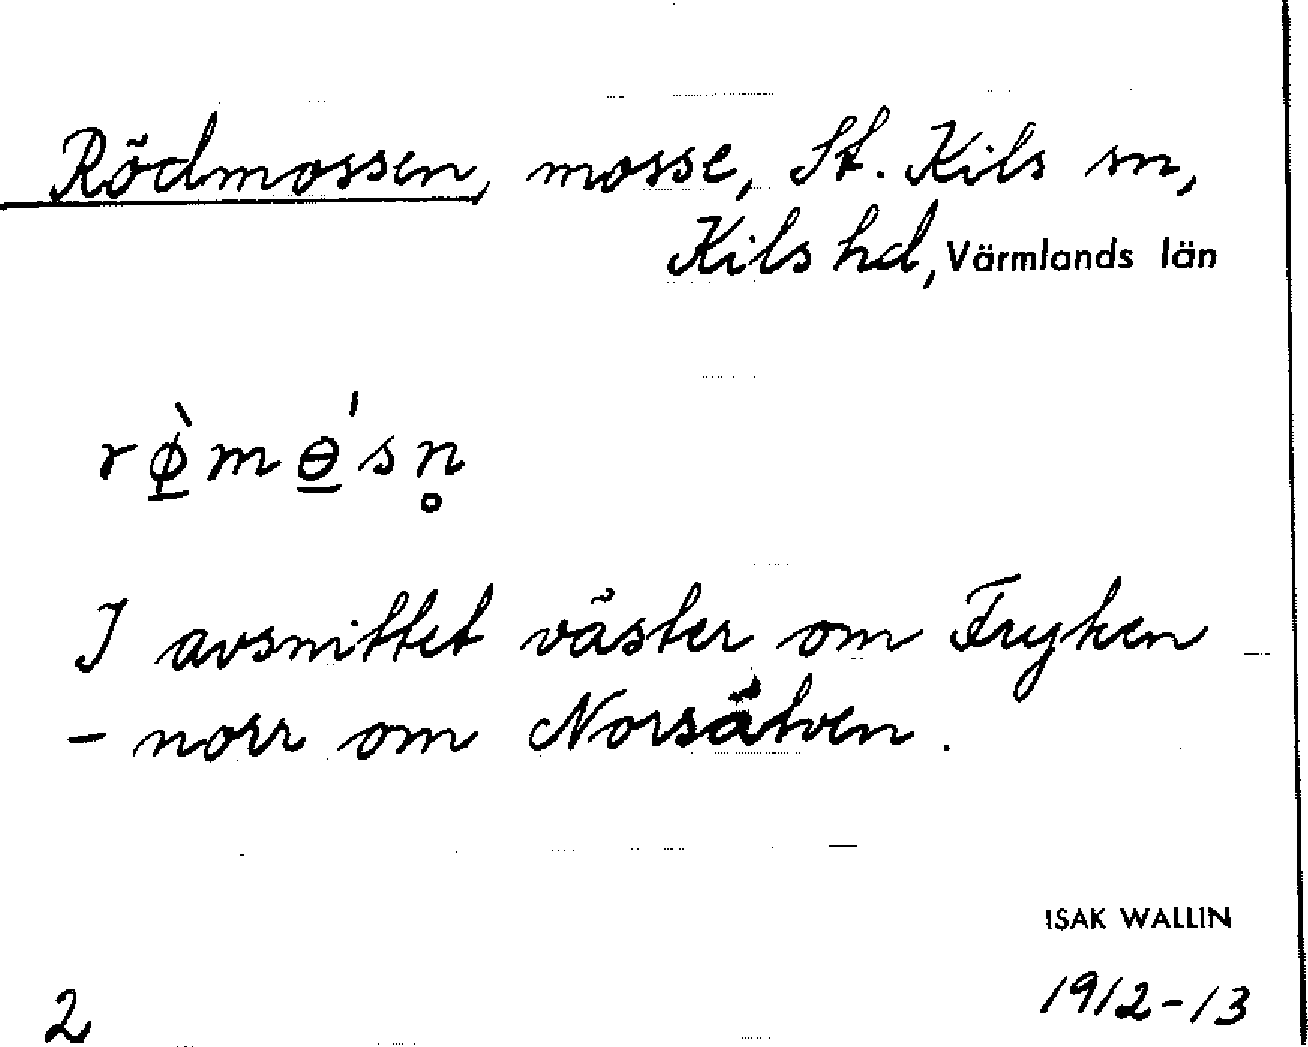 Rödmossen, mosse, St. Kils sn,
Kils hd, Värmlands län
rø̱̀mɵ̱'sn̥
I avsnittet väster om Fryken
- norr om Norsälven.
ISAK WALLIN
1912-13
2